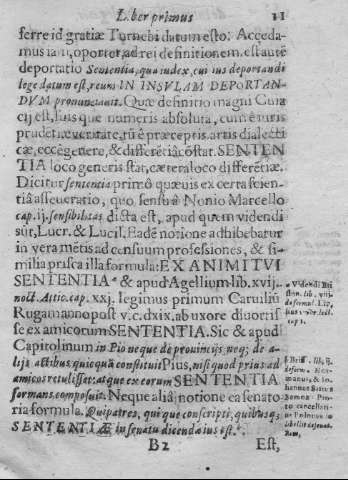 Liber primus 11
ferre id gratiæ Turnebi datum esto: Acceda-
mus iam, oportet, ad rei definitionem. est autē
deportatio Sententia, qua iudex, cui ius deportandi
lege datum est, reum IN INSVLAM DEPORTAN-
DVM pronunciauit. Quæ definitio magni Cuia
cij est, suis que numeris absoluta, cum è iuris
prudētiæ veritate, tū è præceptis artis dialecti
cæ, ecce genere, & differētiâ cōstat. SENTEN
TIA loco generis stat, cætera loco differētiæ.
Dicitur sententia primô quæuis ex certa scien-
tiâ asseueratio, quo sensu â Nonio Marcello
cap. ij. sensibilitas dicta est, apud quem videndi
sūt, Lucr. & Lucil. Eadē notione adhibebatur
in vera mētis ad censuum professiones, & si-
milia prisca illa formula: EX ANIMI TVI
SENTENTIA * & apud Agellium lib. xvij.
noct. Attic. cap. xxj. legimus primum Caruiliū
Rugam anno post v. c. dxix, ab uxore diuortis
se ex amicorum SENTENTIA. Sic & apud
Capitolinum in Pio neque de prouincijs, neq; de a-
lijs actibus quicquā constituit Pius, nisi quod prius ad
amicos retulisset: atque ex eorum SENTENTIA
formans composuit. Neque aliâ notione ea senato
ria formula. Qui patres, qui que conscripti, quibusq;
SENTENTIÆ in senatu dicendæ ius est.
B2 Est,
a Videndi Bri
cap 1.
b Briss. lib. ij.